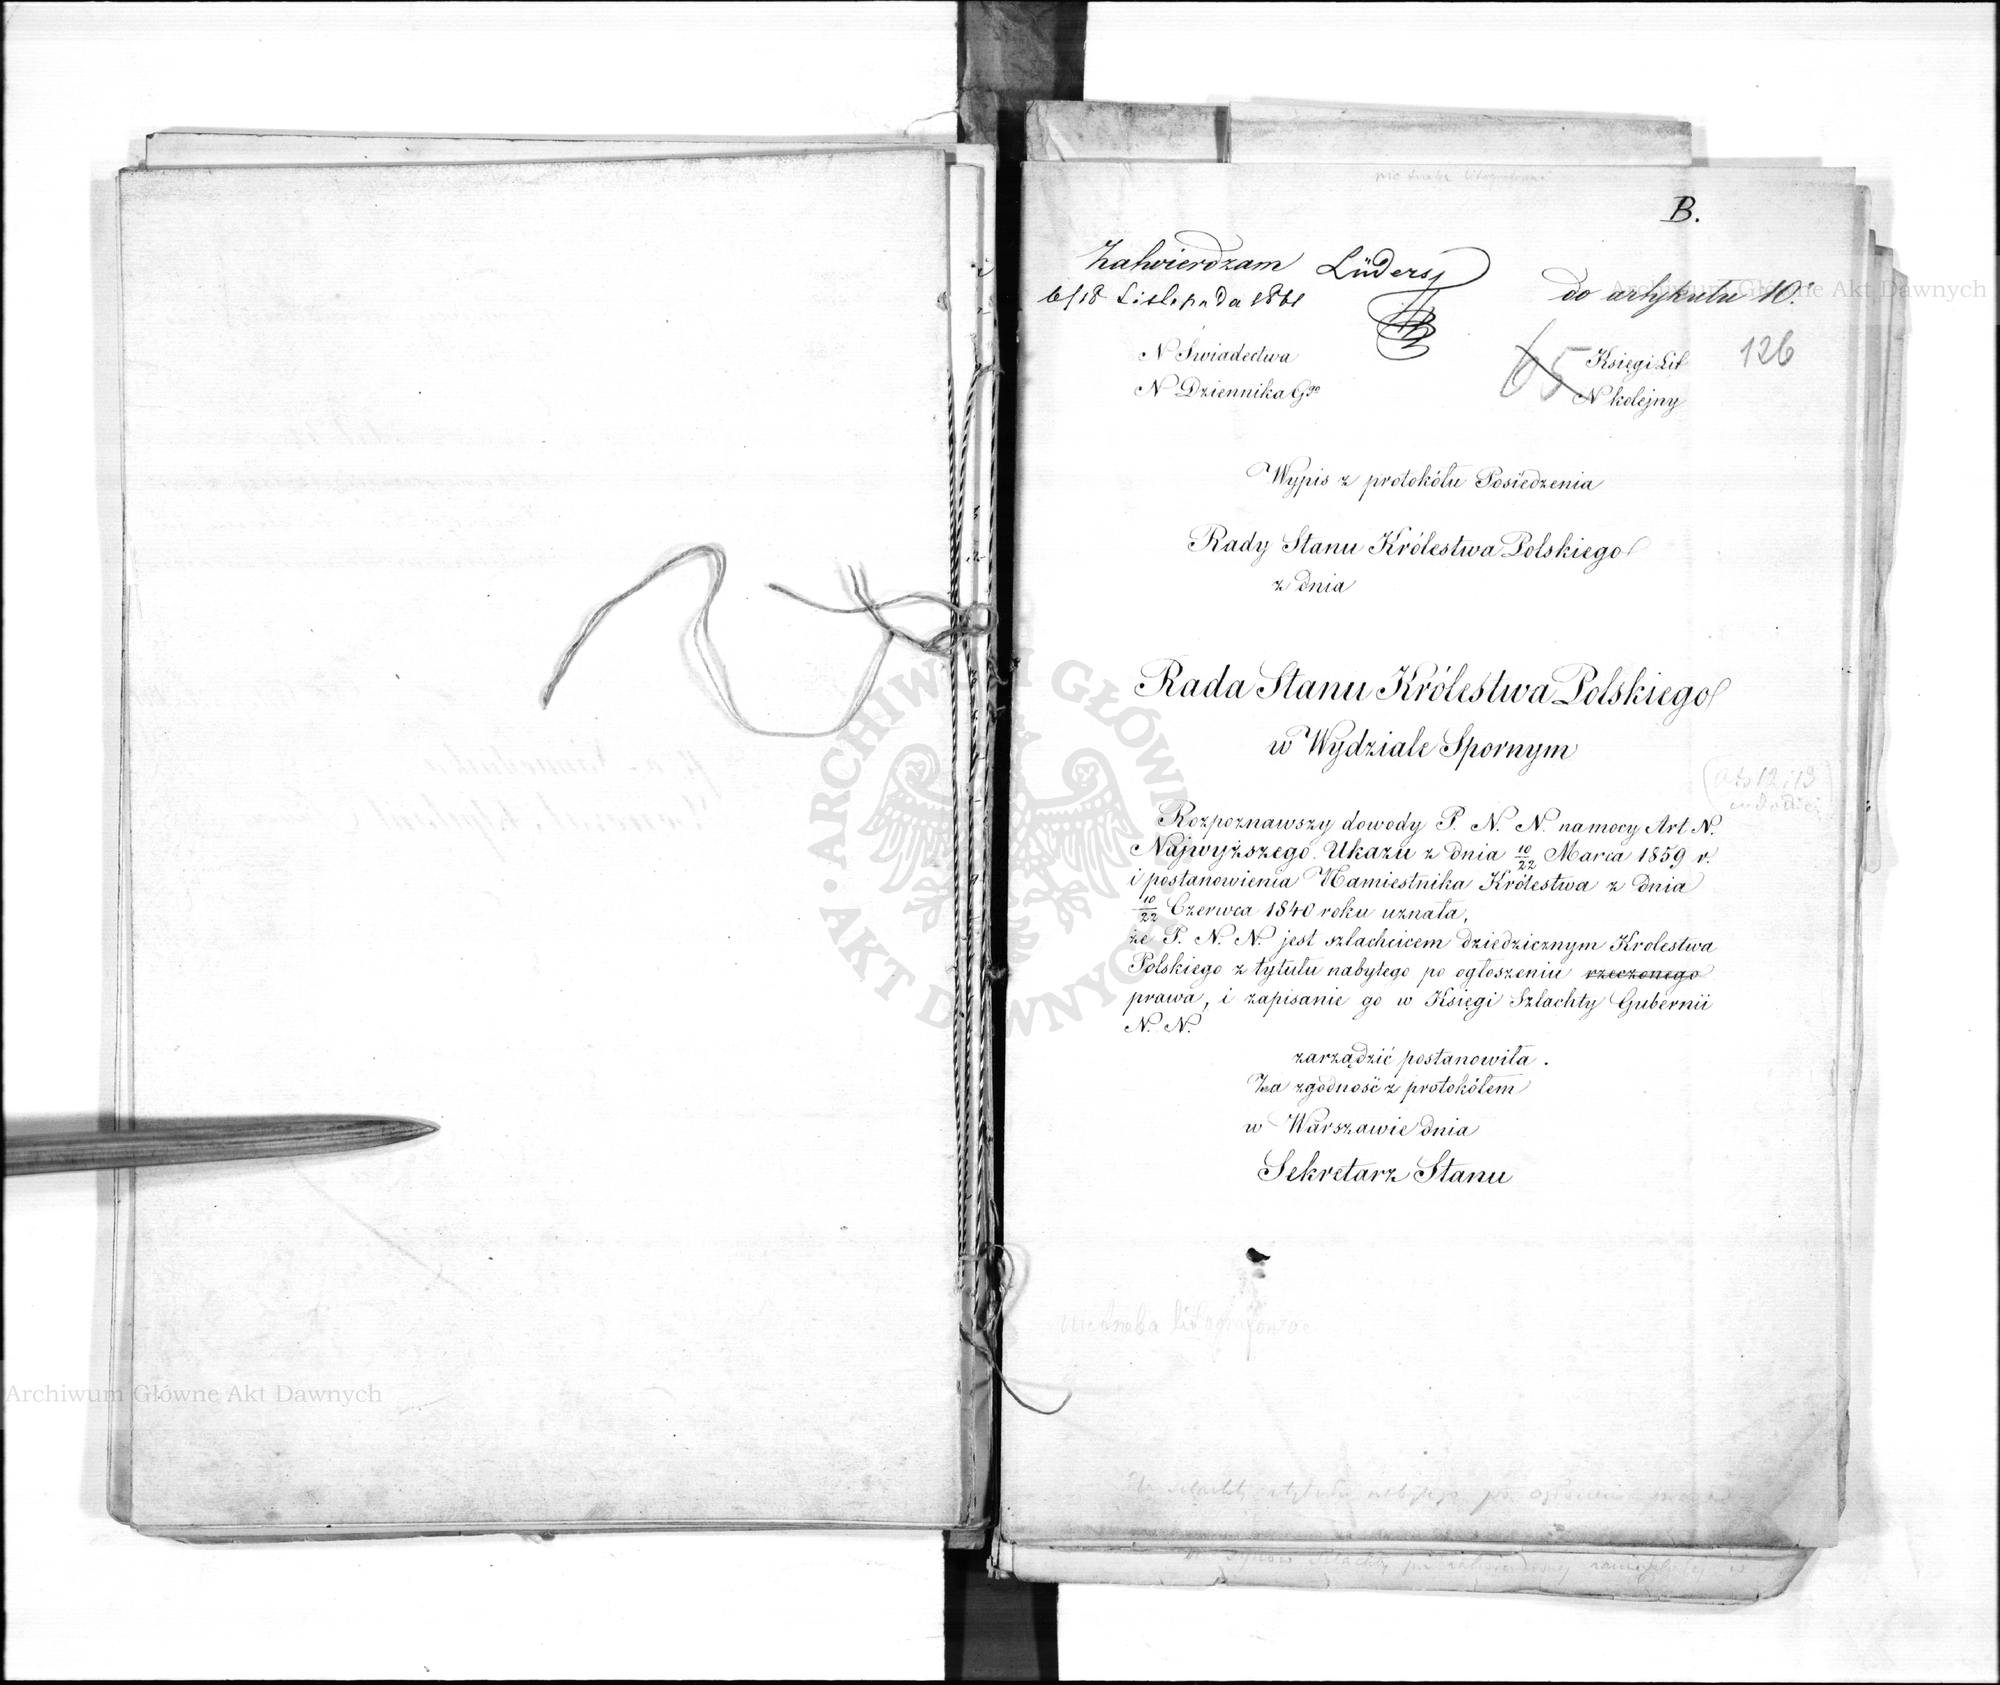 B.
Zatwierdzam Lüders
6/18 Listopada 1861
do artykułu 10.
126
65
N Swiadectwa
Księgi Lit
N Dziennika Ggo
N kolejny
Wypis z protokółu Posiedzenia
Rady Stanu Królestwa Polskiego
z dnia
Rada Stanu Królestwa Polskiego
w Wydziale Spornym
Rozpoznawszy dowody P. N. N. na mocy Art N.
Najwyższego Ukazu z dnia 10/22 Marca 1859 r.
i postanowienia Namiestnika Królestwa z dnia
10/22 Czerwca 1840 roku uznała,
że P. N. N. jest szlachcicem dziedzicznym Krolestwa
Polskiego z tytułu nabytego po ogłoszeniu rzeczonego
prawa, i zapisanie go w Księgi Szlachty Gubernii
N. N.
zarządzić postanowiła.
Za zgodność z protokółem
w Warszawie dnia
Sekretarz Stanu
nietrzeba litografowac
Archiwum Główne Akt Dawnych
Archiwum Główne Akt Dawnych
ARCHIWUM GŁÓWNE AKT DAWNYCH